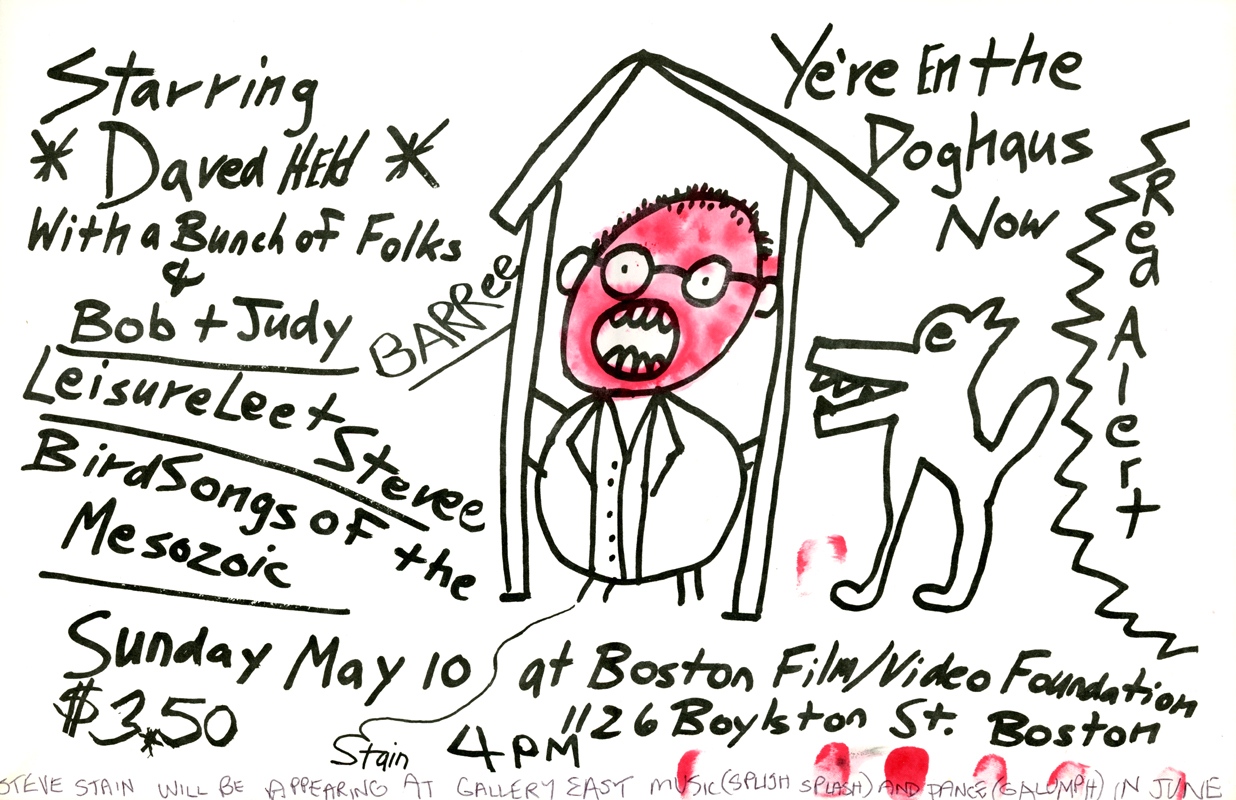 Starring
* Daved Held *
With a Bunch of Folks
&
Bob + Judy
BARRee
LeisureLee + Stevee
BirdSongs of the
Mesozoic
Ye're En the
Doghaus
Now
Red Alert
Sunday May 10 at Boston Film/Video Foundation
$3.50
Stain
4 pm
1126 Boylston St. Boston
STEVE STAIN WILL BE APPEARING AT GALLERY EAST MUSIC (SPLISH SPLASH) AND DANCE (GALUMPH) IN JUNE